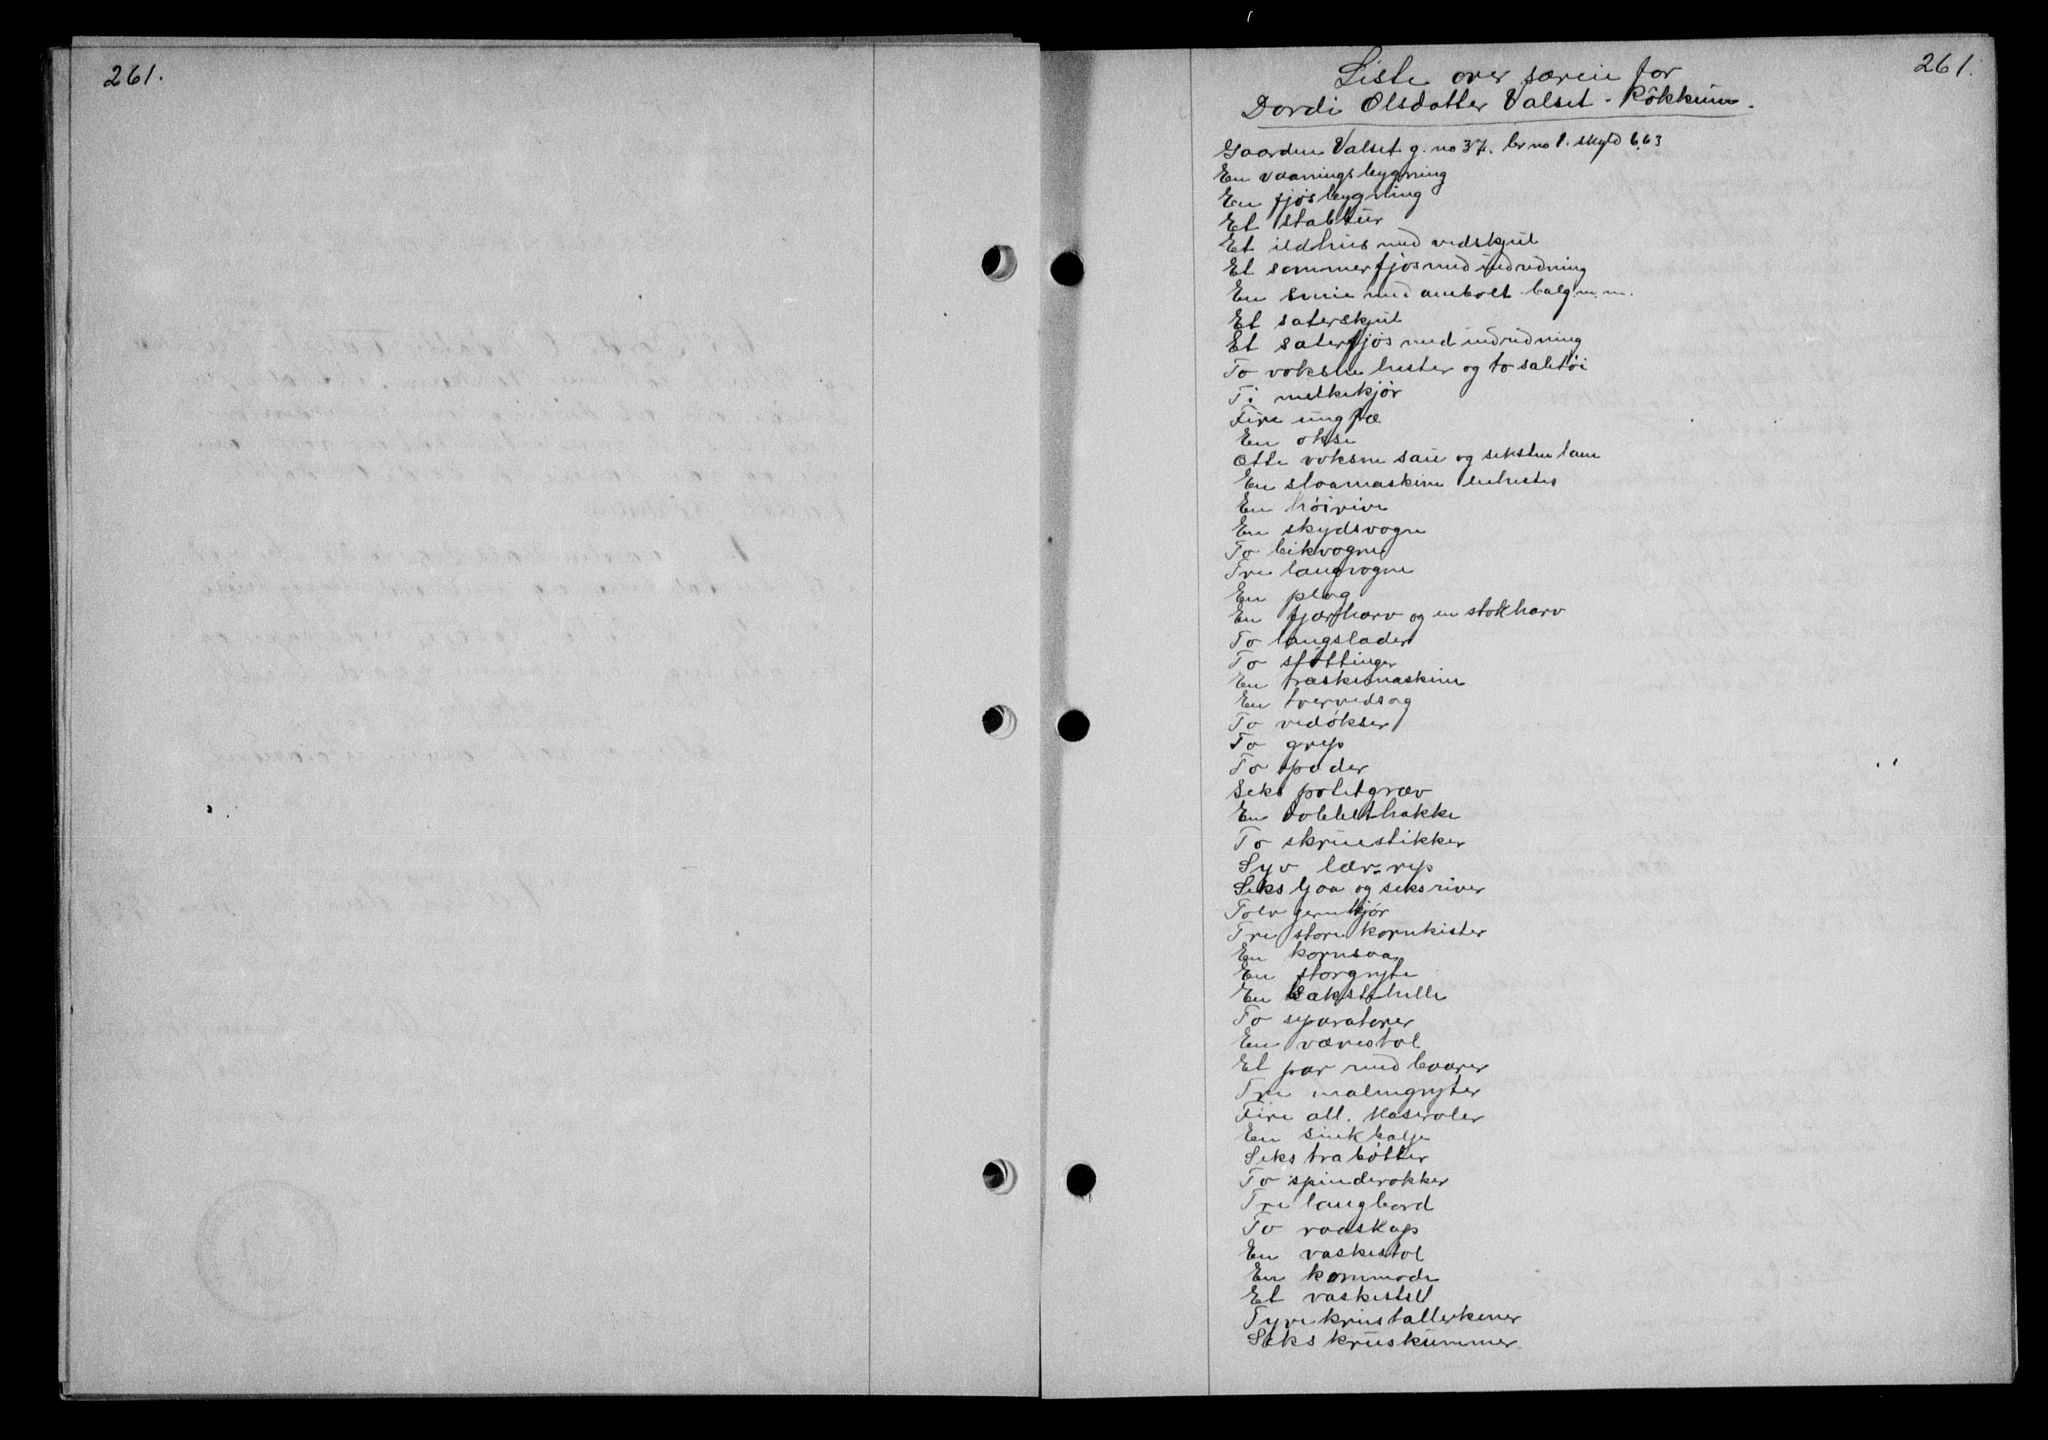 261.
261.
Liste over særeie for
Dordi Olsdatter Valset - Røkkum.
Gaarden Valset g. no 37. br no 1. skyld 6,63
En vaaningsbygning
En fjøsbygning
Et stabbur
Et ildhus med vedskjul
Et sommerfjøs med indredning
En smie med ambolt balg m.m.
Et sæterskjul
Et sæterfjøs med indredning
To voksne hester og to seletøi
Ti melkekjør
Fire ungfæ
En okse
Otte voksne sau ogseksten lam
En slaamaskine enhestes
En høirive
En skydsvogn
To leikvogner
Tre langvogne
En plog
En fjærharv og en stokharv
To langslæder
To støttinger
En træskemaskine
En tvervedsag
To vedøkser
To grep
To spader
Seks potetgræv
En dobbelthakke
To skruestikker
Syv lær-rep
Seks ljaa og seks river
Tolv jernkjør
Tre store kornkister
En kornsaa
En storgryte
En bakstehelle
To separatorer
En vævestol
Et par med baarer
Tre malmgryter
Fire all. kaseroler
En sinkbalje
Seks træbøtter
To spinderokker
Tre langbord
To raaskap
En vaskestol
En kommode
Et vaskestell
Tyve krustallerkener
Seks kruskummer